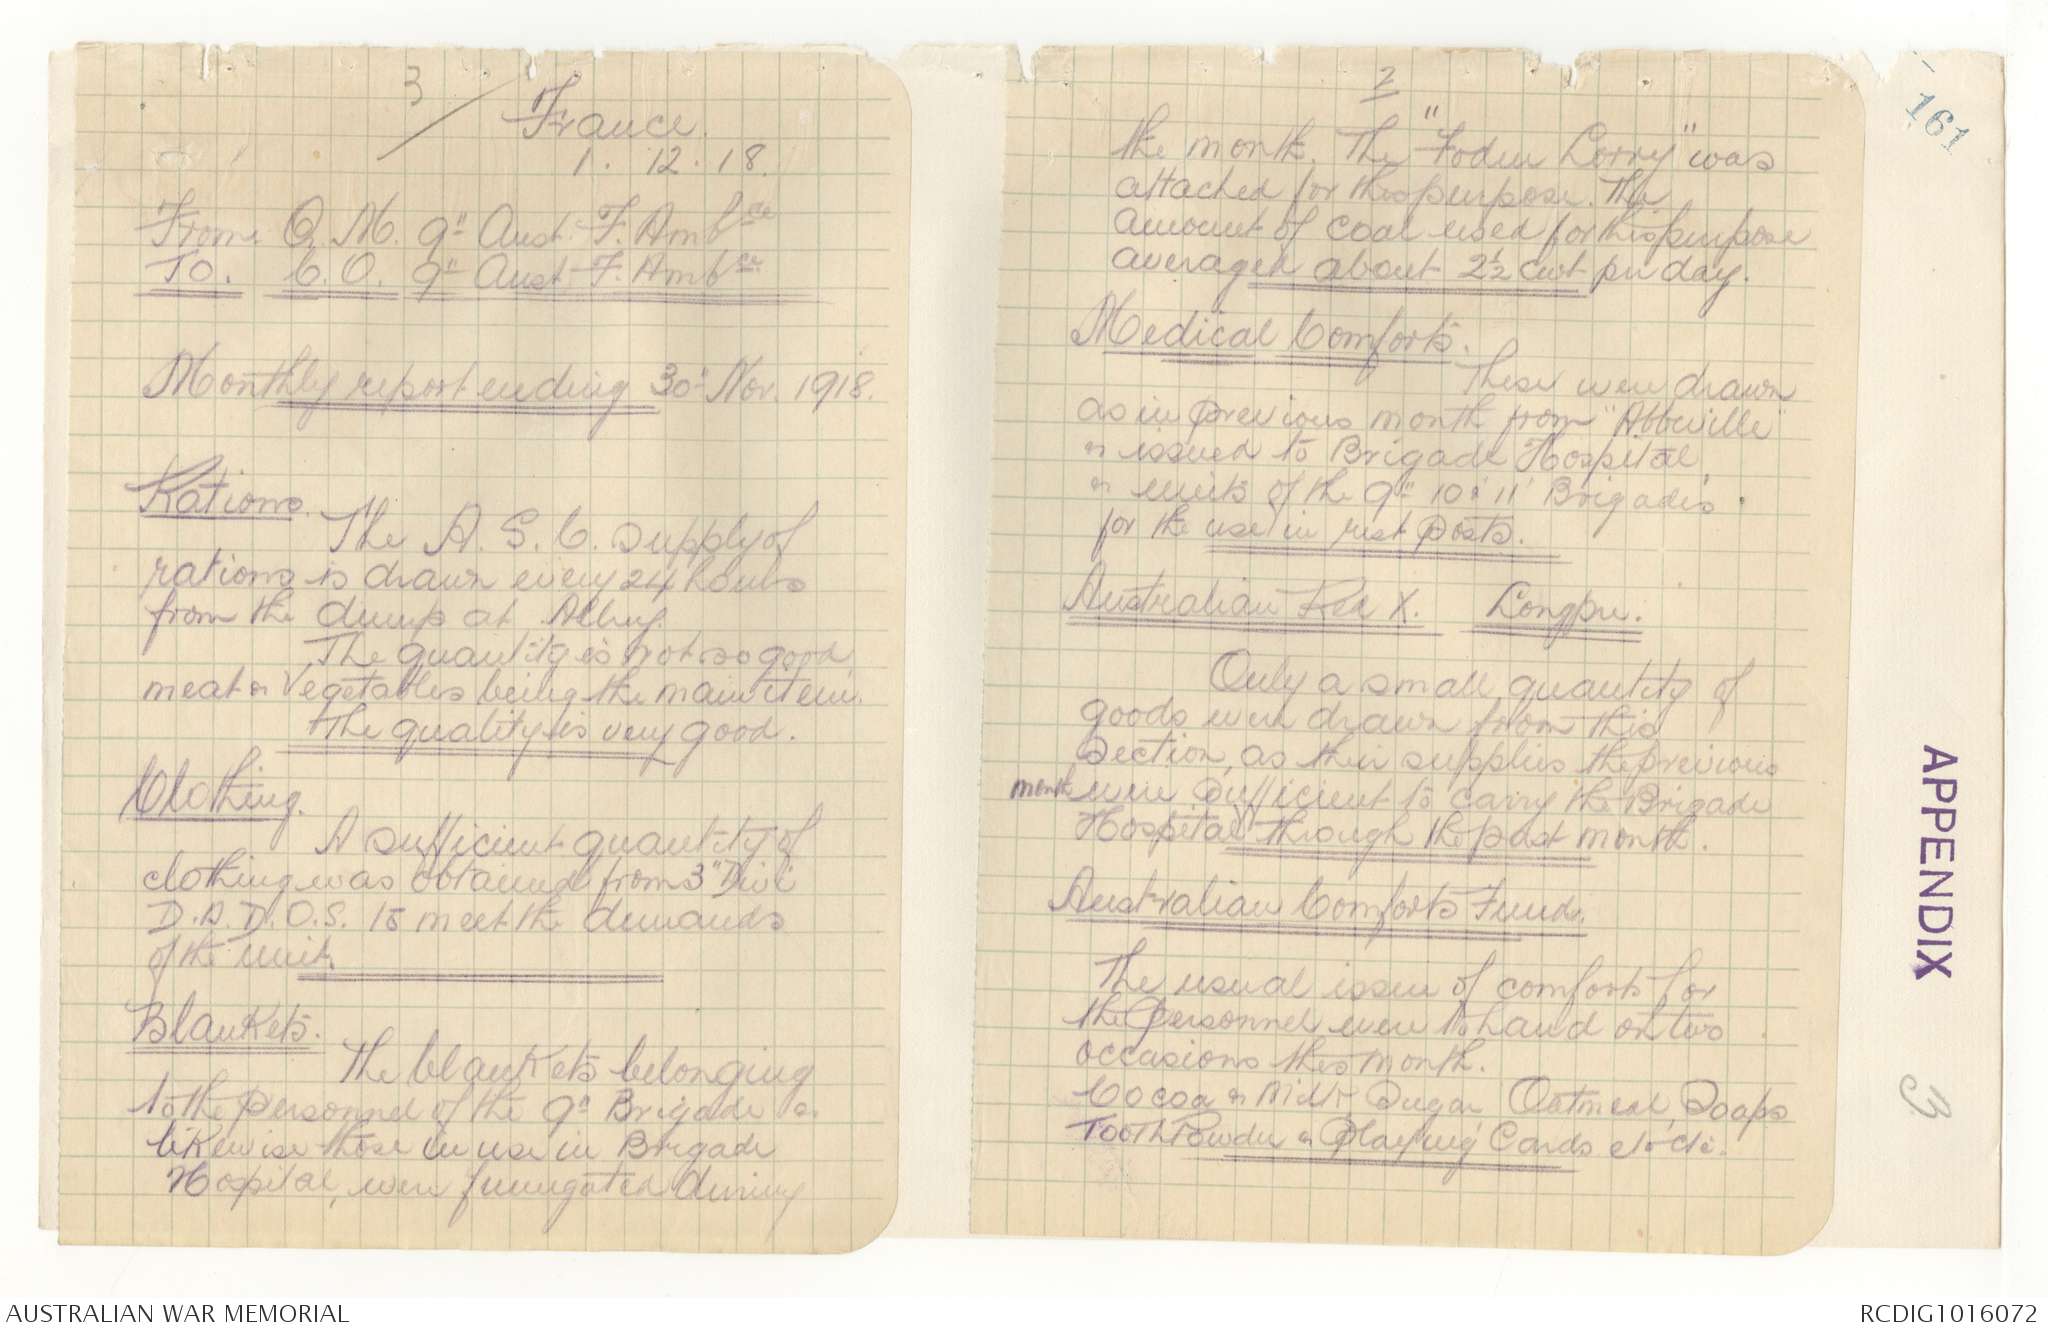 3
France.
1. 12. 18.
From. Q. M. 9" Aust. F. Ambce
To. C. O. 9" Aust. F. Ambce
Monthly report ending 30" Nov. 1918.
Rations.
The A. S. C. supply of
rations is drawn every 24 hours
from the dump at
The quantity is not so good
meat & vegetables being the main item.
The quality is very good.
Clothing.
A sufficient quantity of
clothing was obtained from 3" Divl
D.A.D.O.S. to meet the demands
of the unit.
Blankets.
The blankets belonging
to the personnel of the 9" Brigade &
likewise those in use in Brigade
Hospital, were fumigated during
2
the month. The "Foden Lorry" was
attached for this purpose. The
amount of coal used for this purpose
averaged about 2½ cwt per day.
Medical Comforts.
These were drawn
as in previous month from "Abbeville"
& issued to Brigade Hospital,
& units of the 9" 10" & 11" Brigades
for the use in rest posts.
Australian Red X. Longpre.
Only a small quantity of
goods were drawn from this
section, as their supplies the previous
month were sufficient to carry the Brigade
Hospital through the past month.
Australian Comforts Fund.
The usual issue of comforts for
the personnel were to hand on two
occasions this month.
Cocoa & Milk, Sugar, Oatmeal, Soaps
Tooth Powder & Playing Cards etc etc.
161
APPENDIX
3
AUSTRALIAN WAR MEMORIAL
RCDIG1016072